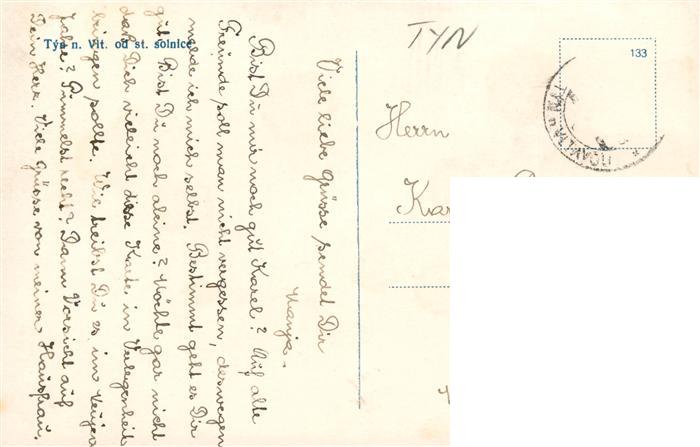 Týn n. Vlt. od st. solnice
TÝN
133
Viele liebe Grüsse sendet Dir
Manja.
Bist Du mir noch gut Karel? Auf alte
Freunde soll man nicht vergessen, deswegen
melde ich mich selbst. Bestimmt geht es Dir
gut. Bist Du noch aleine? Möchte gar nicht
daß Dich vieleicht diese Karte in Verlegenheit
bringen sollte. Wie treibst Du es im Neujen
Jahre? Pimmelst recht? Dann Vorsicht auf
Dein Herz. Viele Grüsse von meiner Hausfrau.
Herrn